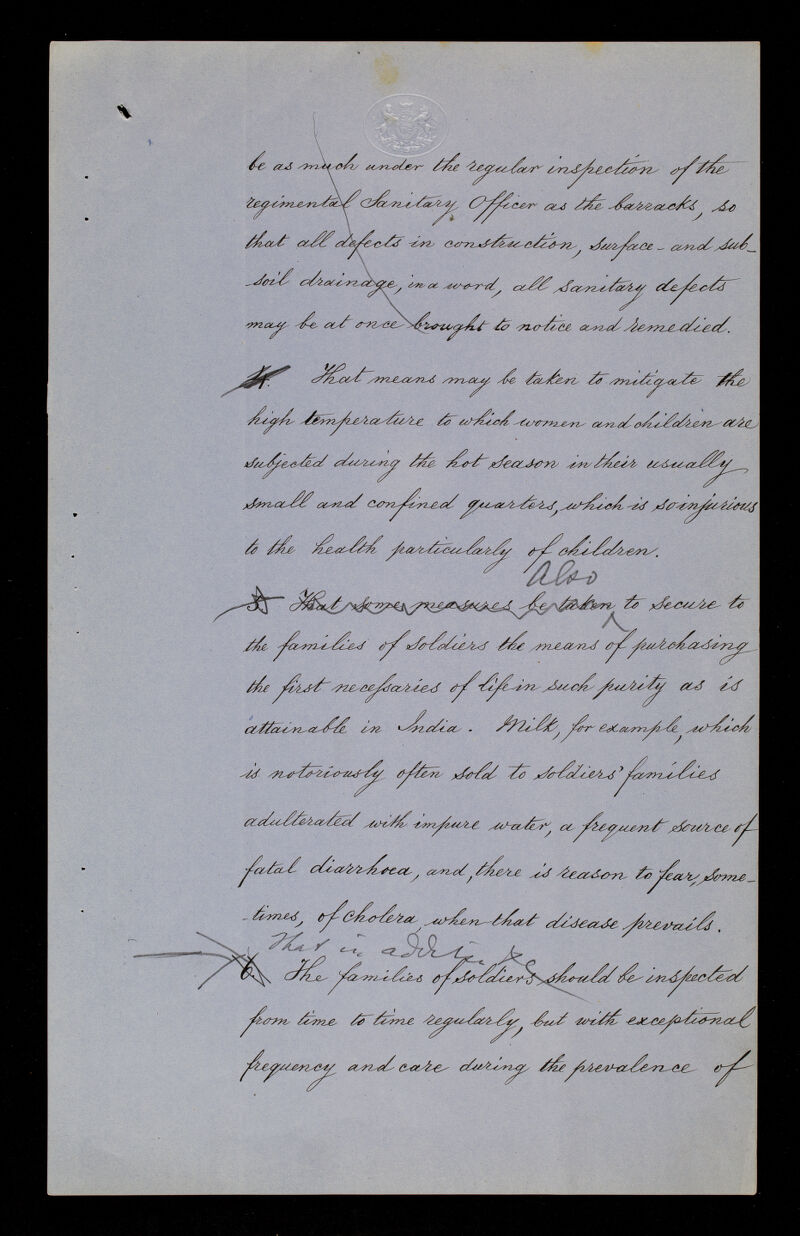 be as much under the regular inspection of the
regimental Sanitary Officer as the barracks, so
that all defects in construction, surface- and sub-
-soil drainage, in a word, all sanitary defects
may be at once brought to notice and remedied.
4. That means may be taken to mitigate the
high temperature to which women and children are
subjected during the hot season in their usually
small and confined quarters, which is so injurious
to the health particularly of children.
Also
5. That some measures be taken to secure to
the families of soldiers the means of purchasing
the first necessaries of life in such purity as is
attainable in India. Milk, for example, which
is notoriously often sold to soldiers' families
adulterated with impure water, a frequent source of
fatal diarrhoea, and, there is reason to fear, some-
-times, of cholera when that disease prevails.
That in addition
6. The families of soldiers should be inspected
from time to time regularly, but with exceptional
frequency and care during the prevalence of